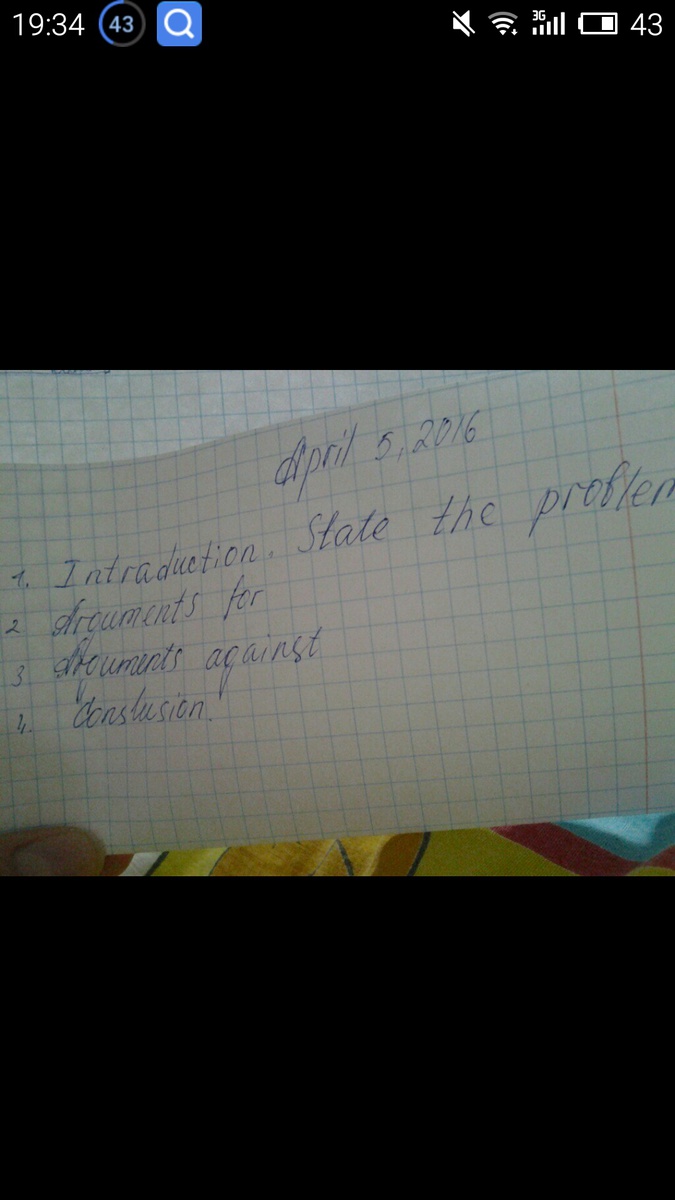 19:34 43 3G 43
April 5, 2016
1. Intraduction. State the problem
2 Arguments for
3 Arguments against
4. Conslusion.